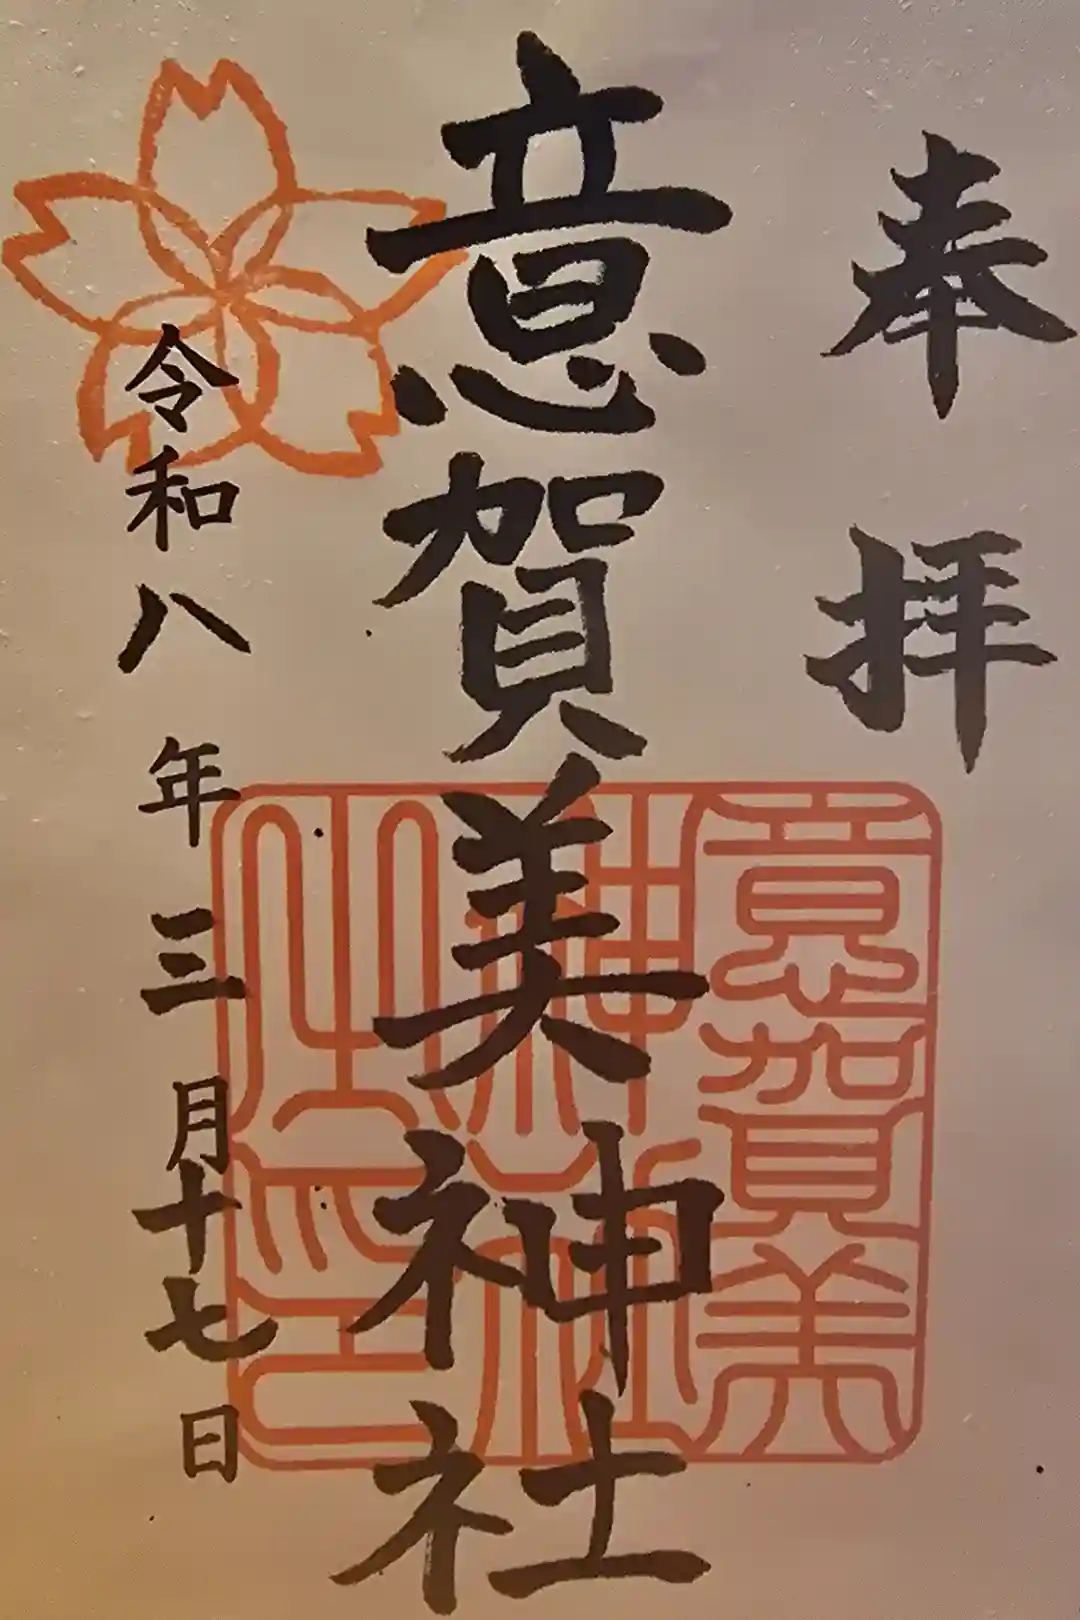 奉拝
意賀美神社
意賀美
神社
之印
令和八年三月十七日